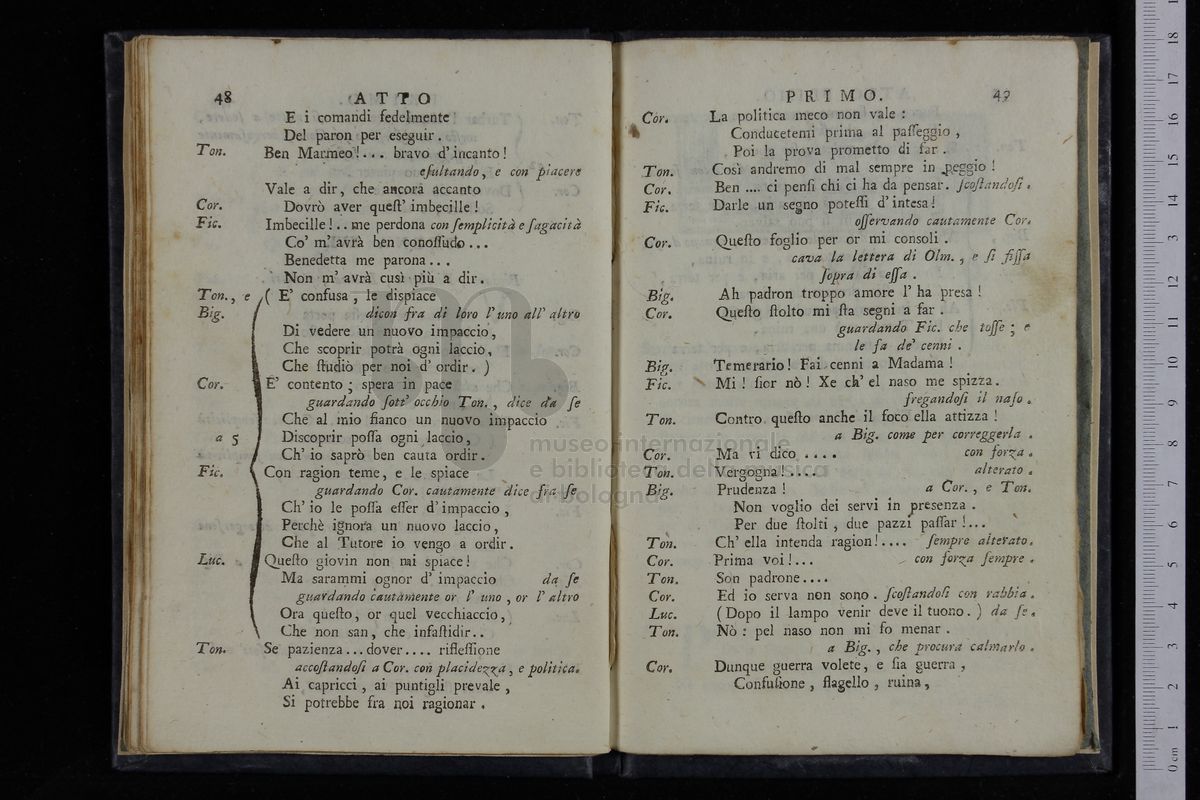 48 ATTO
E i comandi fedelmente
Del paron per eseguir.
Ton. Ben Marmeo!... bravo d'incanto!
eſultando, e con piacere
Vale a dir, che ancora accanto
Cor. Dovrò aver queſt' imbecille!
Fic. Imbecille!.. me perdona con ſemplicità e ſagacità
Co' m' avrà ben conoſſudo...
Benedetta me parona...
Non m' avrà cusì più a dir.
Ton., e ( E' confusa, le dispiace
Big. dicon fra di loro l' uno all' altro
Di vedere un nuovo impaccio,
Che scoprir potrà ogni laccio,
Che ſtudiò per noi d' ordir. )
Cor. E' contento; spera in pace
guardando ſott' occhio Ton., dice da ſe
Che al mio fianco un nuovo impaccio
a 5 Discoprir poſſa ogni laccio,
Ch' io saprò ben cauta ordir.
Fic. Con ragion teme, e le spiace
guardando Cor. cautamente dice fra ſe
Ch' io le poſſa eſſer d' impaccio,
Perchè ignora un nuovo laccio,
Che al Tutore io vengo a ordir.
Luc. Queſto giovin non mi spiace!
Ma sarammi ognor d' impaccio da ſe
guardando cautamente or l' uno, or l' altro
Ora queſto, or quel vecchiaccio,
Che non san, che infaſtidir..
Ton. Se pazienza... dover.... rifleſſione
accoſtandoſi a Cor. con placidezza, e politica.
Ai capricci, ai puntigli prevale,
Si potrebbe fra noi ragionar.
PRIMO. 49
Cor. La politica meco non vale:
Conducetemi prima al paſſeggio,
Poi la prova prometto di far.
Ton. Così andremo di mal sempre in peggio!
Cor. Ben .... ci penſi chi ci ha da pensar. ſcoſtandoſi.
Fic. Darle un segno poteſſi d' intesa!
oſſervando cautamente Cor.
Cor. Queſto foglio per or mi consoli.
cava la lettera di Olm., e ſi fiſſa
ſopra di eſſa.
Big. Ah padron troppo amore l' ha presa!
Cor. Queſto ſtolto mi ſta segni a far.
guardando Fic. che toſſe; e
le fa de' cenni.
Big. Temerario! Fai cenni a Madama!
Fic. Mi! ſior nò! Xe ch' el naso me spizza.
fregandoſi il naſo.
Ton. Contro queſto anche il foco ella attizza!
a Big. come per correggerla.
Cor. Ma vi dico .... con forza.
Ton. Vergogna!.... alterato.
Big. Prudenza! a Cor., e Ton.
Non voglio dei servi in presenza
Per due ſtolti, due pazzi paſſar!...
Ton. Ch' ella intenda ragion!.... ſempre alterato.
Cor. Prima voi!... con forza ſempre.
Ton. Son padrone....
Cor. Ed io serva non sono. ſcoſtandoſi con rabbia.
Luc. (Dopo il lampo venir deve il tuono.) da ſe.
Ton. Nò: pel naso non mi fo menar.
a Big., che procura calmarlo.
Cor. Dunque guerra volete, e ſia guerra,
Confuſione, flagello, ruina,
museo internazionale
e biblioteca della musica
di bologna
0 cm 1 2 3 4 5 6 7 8 9 10 11 12 13 14 15 16 17 18